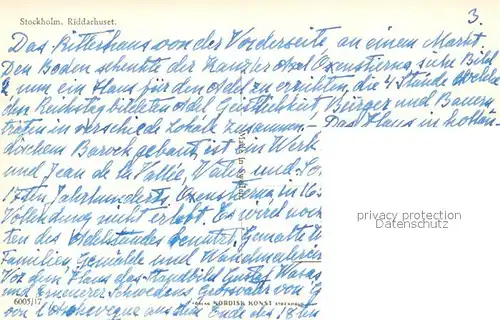 Stockholm. Riddarhuset.
3.
Das Ritterhaus von der Vorderseite, an einem Markt
Den Boden schenkte der Kanzler Axel Oxenstierna, siehe Bild
2, um ein Haus für den Adel zu errichten, die 4 Stände welche
den Reichstag bildeten Adel Geistlichkeit, Bürger und Bauern
traten in verschiede Lokale zusammen. — Das Haus in hollän-
dischem Barock gebaut, ist ein Werk
von Jean de la Vallée, Vater und So
17ten Jahrhunderts. Oxenstierna in 16
Vollendung nicht erlebt. Es wird noch
ten des Adelstandes benutzt. Gemalte
Familien Gemälde und Wandmalereien
Vor dem Haus das Standbild Gustav Wasas
und Erneuerer Schwedens Grossvater von G
von l'Archeveque aus dem Ende des 18ten
6005/17
NORDISK KONST STOCKHOLM
privacy protection
www.oldthing.de